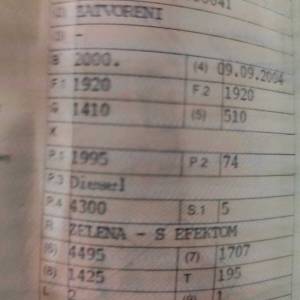 (2) ZATVORENI
(3) -
B 2000. (4) 09.09.2004
F.1 1920 F.2 1920
G 1410 (5) 510
K
P.1 1995 P.2 74
P.3 Diesel
P.4 4300 S.1 5
R ZELENA - S EFEKTOM
(6) 4495 (7) 1707
(8) 1425 T 195
L 2 (9) 1